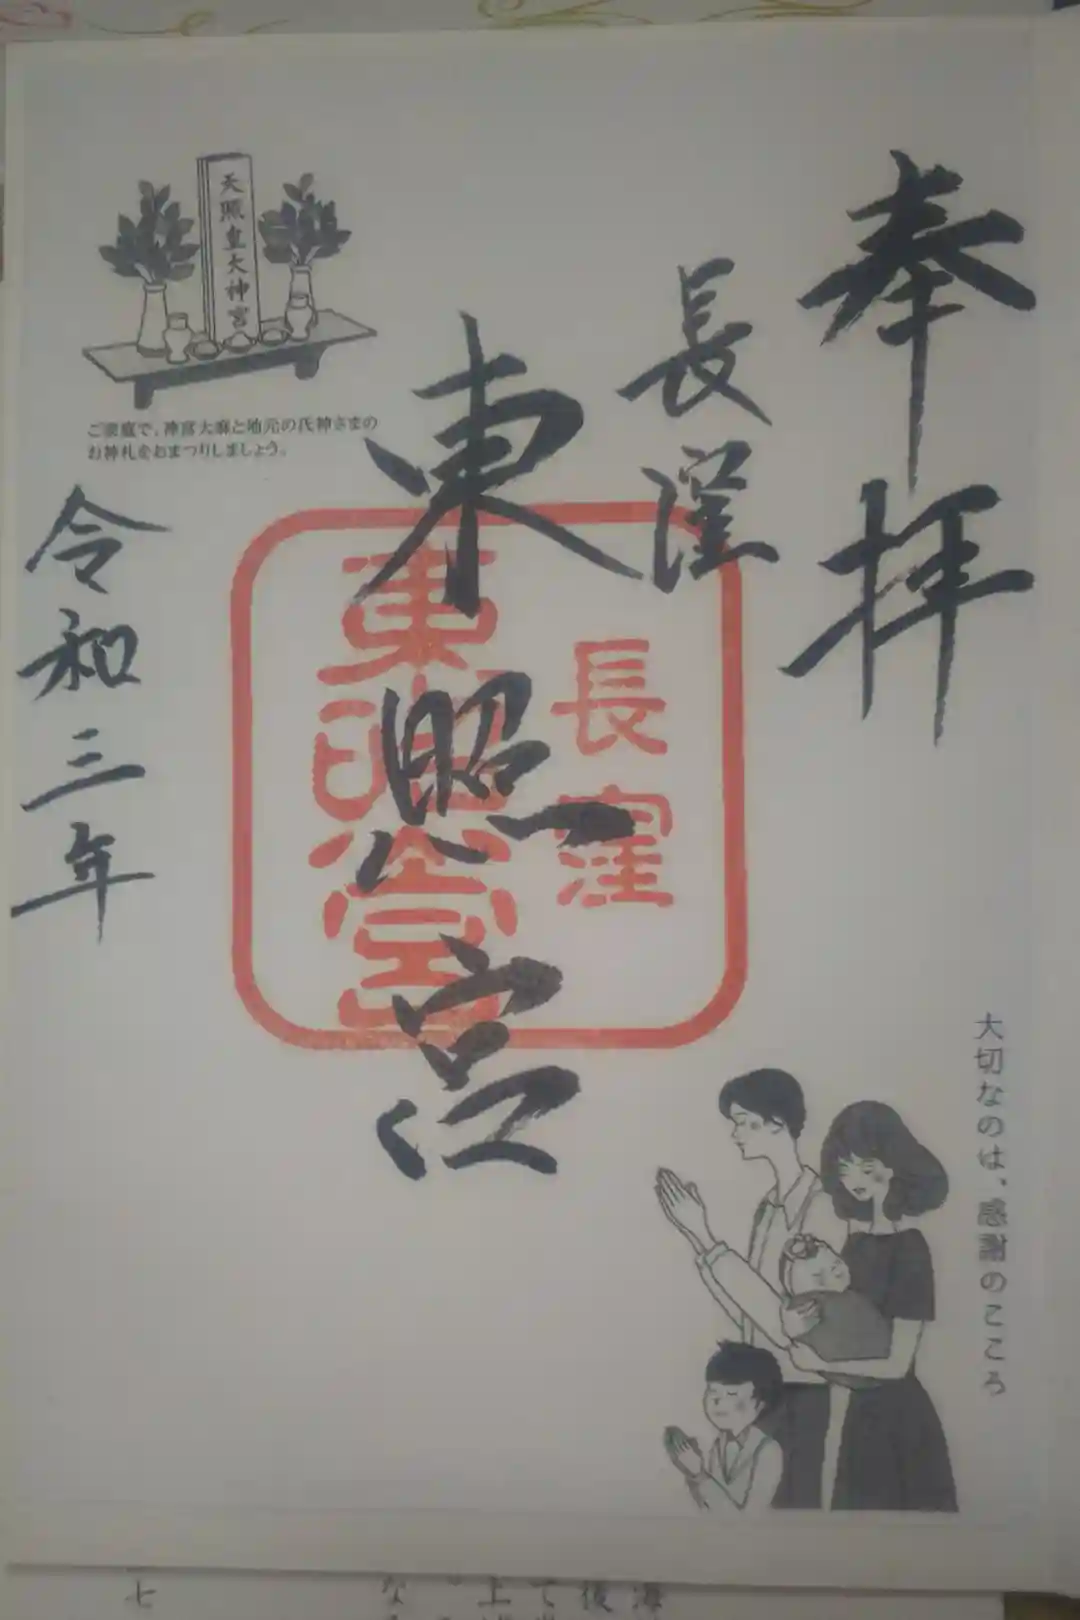 奉拝
長窪
東照宮
長窪
東照宮
令和三年
天照皇大神宮
ご家庭で、神宮大麻と地元の氏神さまの
お神札をおまつりしましょう。
大切なのは、感謝のこころ
七